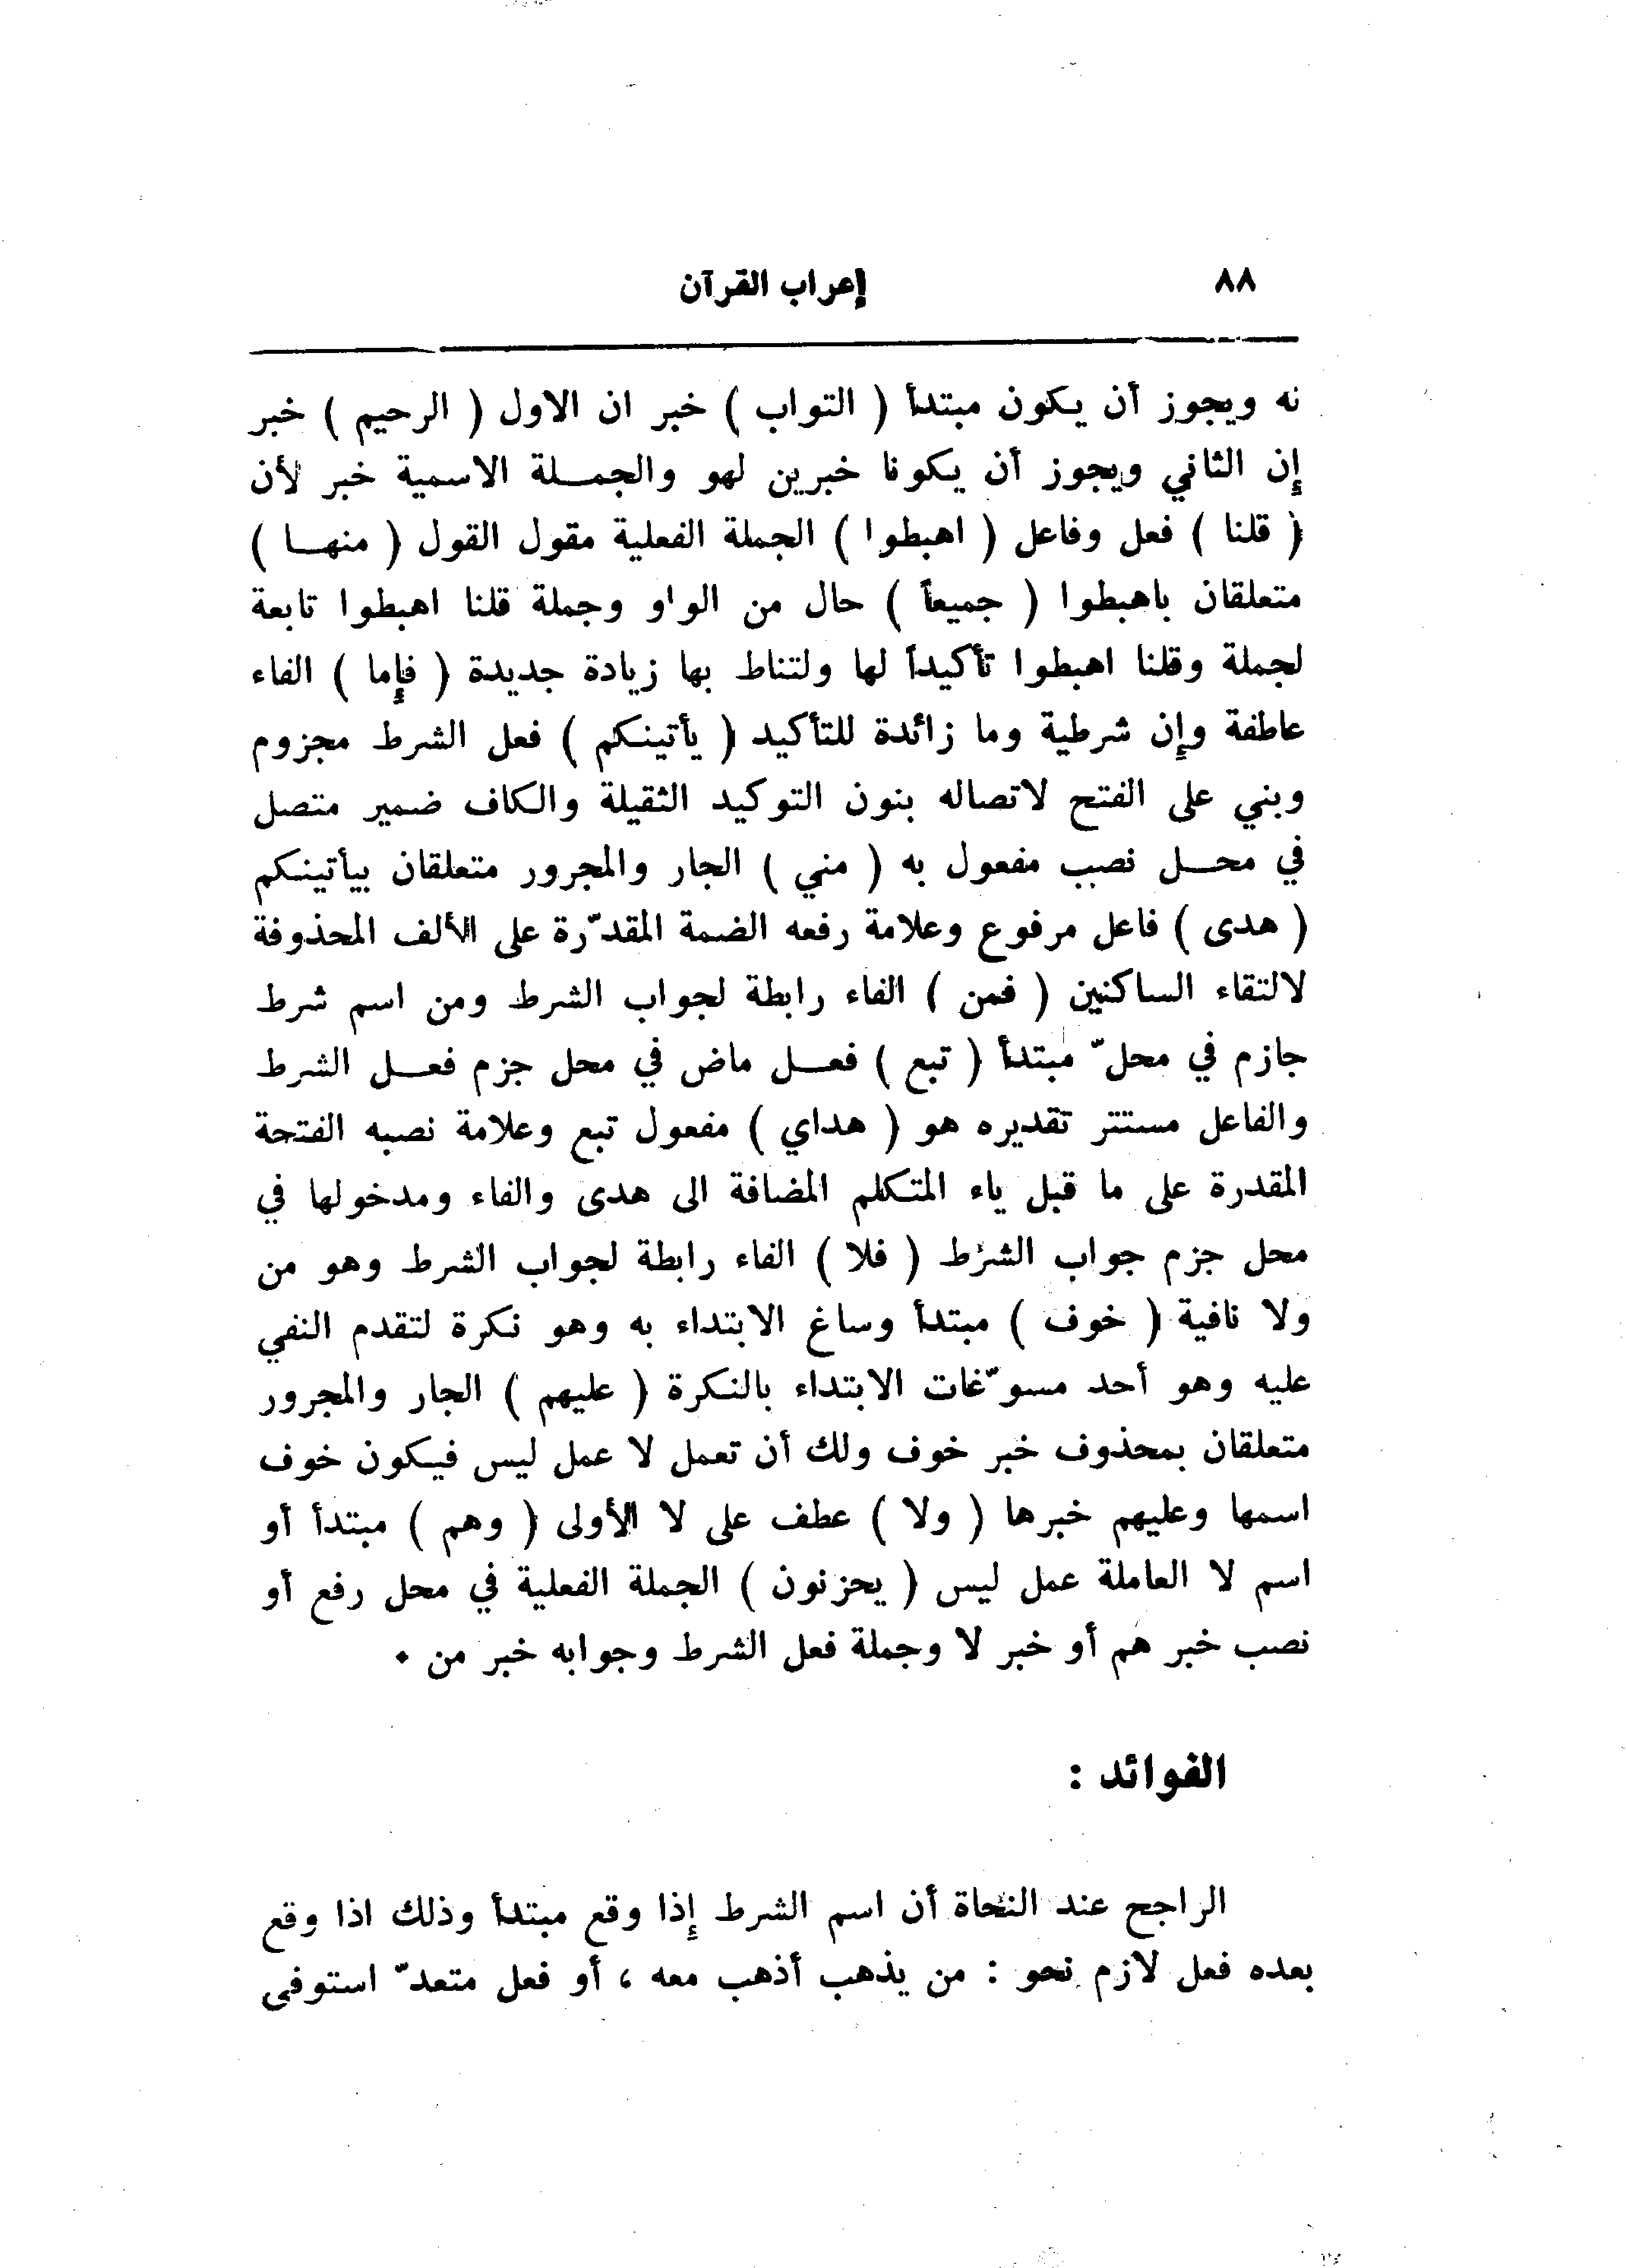 ٨٨
إعراب القرآن
نه ويجوز أن يكون مبتدأ ( التواب ) خبر ان الاول ( الرحيم ) خبر
إن الثاني ويجوز أن يكونا خبرين لهو والجملة الاسمية خبر لأن
( قلنا ) فعل وفاعل ( اهبطوا ) الجملة الفعلية مقول القول ( منها )
متعلقان باهبطوا ( جميعاً ) حال من الواو وجملة قلنا اهبطوا تابعة
لجملة وقلنا اهبطوا تأكيداً لها ولتناط بها زيادة جديدة ( فإما ) الفاء
عاطفة وإن شرطية وما زائدة للتأكيد ( يأتينكم ) فعل الشرط مجزوم
وبني على الفتح لاتصاله بنون التوكيد الثقيلة والكاف ضمير متصل
في محل نصب مفعول به ( مني ) الجار والمجرور متعلقان بيأتينكم
( هدى ) فاعل مرفوع وعلامة رفعه الضمة المقدّرة على الألف المحذوفة
لالتقاء الساكنين ( فمن ) الفاء رابطة لجواب الشرط ومن اسم شرط
جازم في محلّ مبتدأ ( تبع ) فعل ماض في محل جزم فعل الشرط
والفاعل مستتر تقديره هو ( هداي ) مفعول تبع وعلامة نصبه الفتحة
المقدرة على ما قبل ياء المتكلم المضافة الى هدى والفاء ومدخولها في
محل جزم جواب الشرط ( فلا ) الفاء رابطة لجواب الشرط وهو من
ولا نافية ( خوف ) مبتدأ وساغ الابتداء به وهو نكرة لتقدم النفي
عليه وهو أحد مسوّغات الابتداء بالنكرة ( عليهم ) الجار والمجرور
متعلقان بمحذوف خبر خوف ولك أن تعمل لا عمل ليس فيكون خوف
اسمها وعليهم خبرها ( ولا ) عطف على لا الأولى ( وهم ) مبتدأ أو
اسم لا العاملة عمل ليس ( يحزنون ) الجملة الفعلية في محل رفع أو
نصب خبر هم أو خبر لا وجملة فعل الشرط وجوابه خبر من ٠
الفوائد :
الراجح عند النحاة أن اسم الشرط إذا وقع مبتدأ وذلك اذا وقع
بعده فعل لازم نحو : من يذهب أذهب معه ، أو فعل متعدّ استوفى